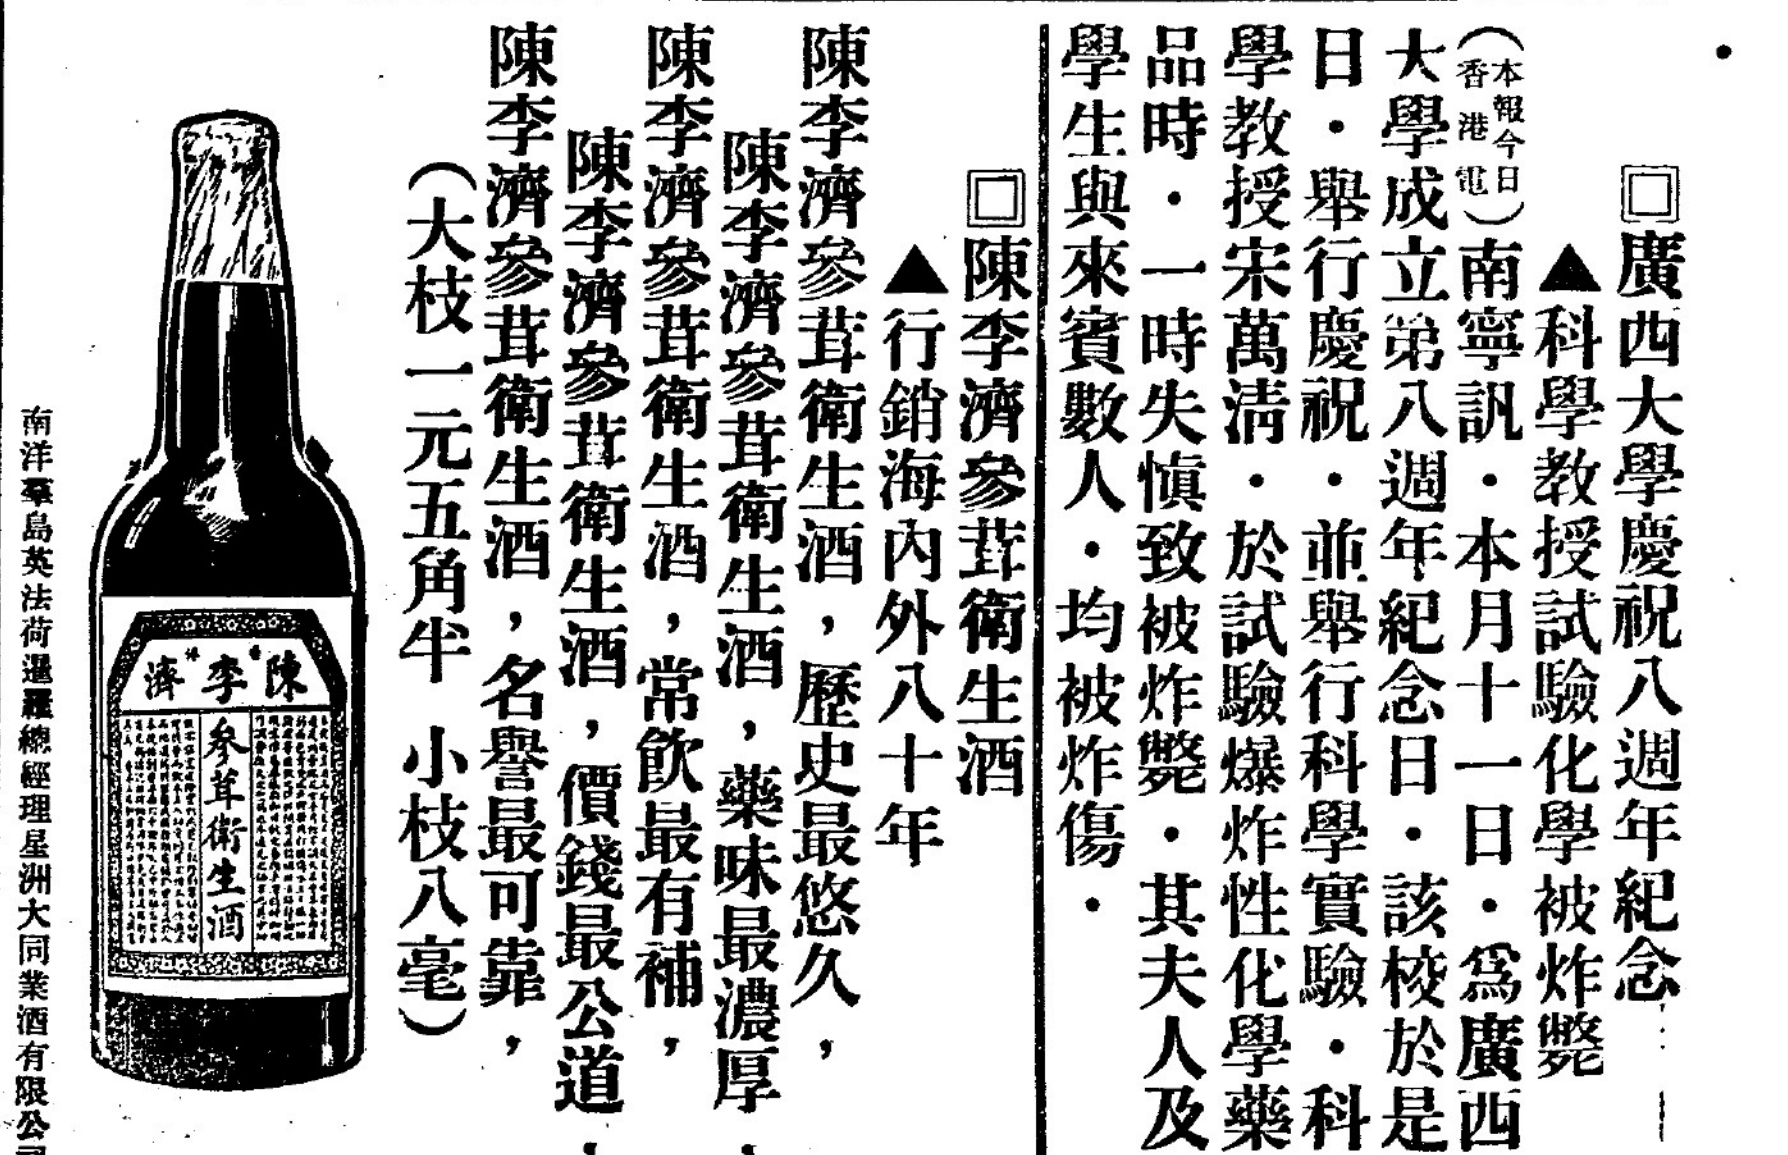 廣西大學慶祝八週年紀念
▲科學教授試驗化學被炸斃
(本報今日香港電)南寧訊・本月十一日・爲廣西
大學成立第八週年紀念日・該校於是
日・舉行慶祝・並舉行科學實驗・科
學教授宋萬清・於試驗爆炸性化學藥
品時・一時失愼致被炸斃・其夫人及
學生與來賓數人・均被炸傷・
陳李濟參茸衛生酒
▲行銷海內外八十年
陳李濟參茸衛生酒，歷史最悠久，
陳李濟參茸衛生酒，藥味最濃厚，
陳李濟參茸衛生酒，常飲最有補，
陳李濟參茸衛生酒，價錢最公道，
陳李濟參茸衛生酒，名譽最可靠，
(大枝一元五角半 小枝八毫)
陳李濟
參茸衛生酒
南洋羣島英法荷暹羅總經理星洲大同業酒有限公司